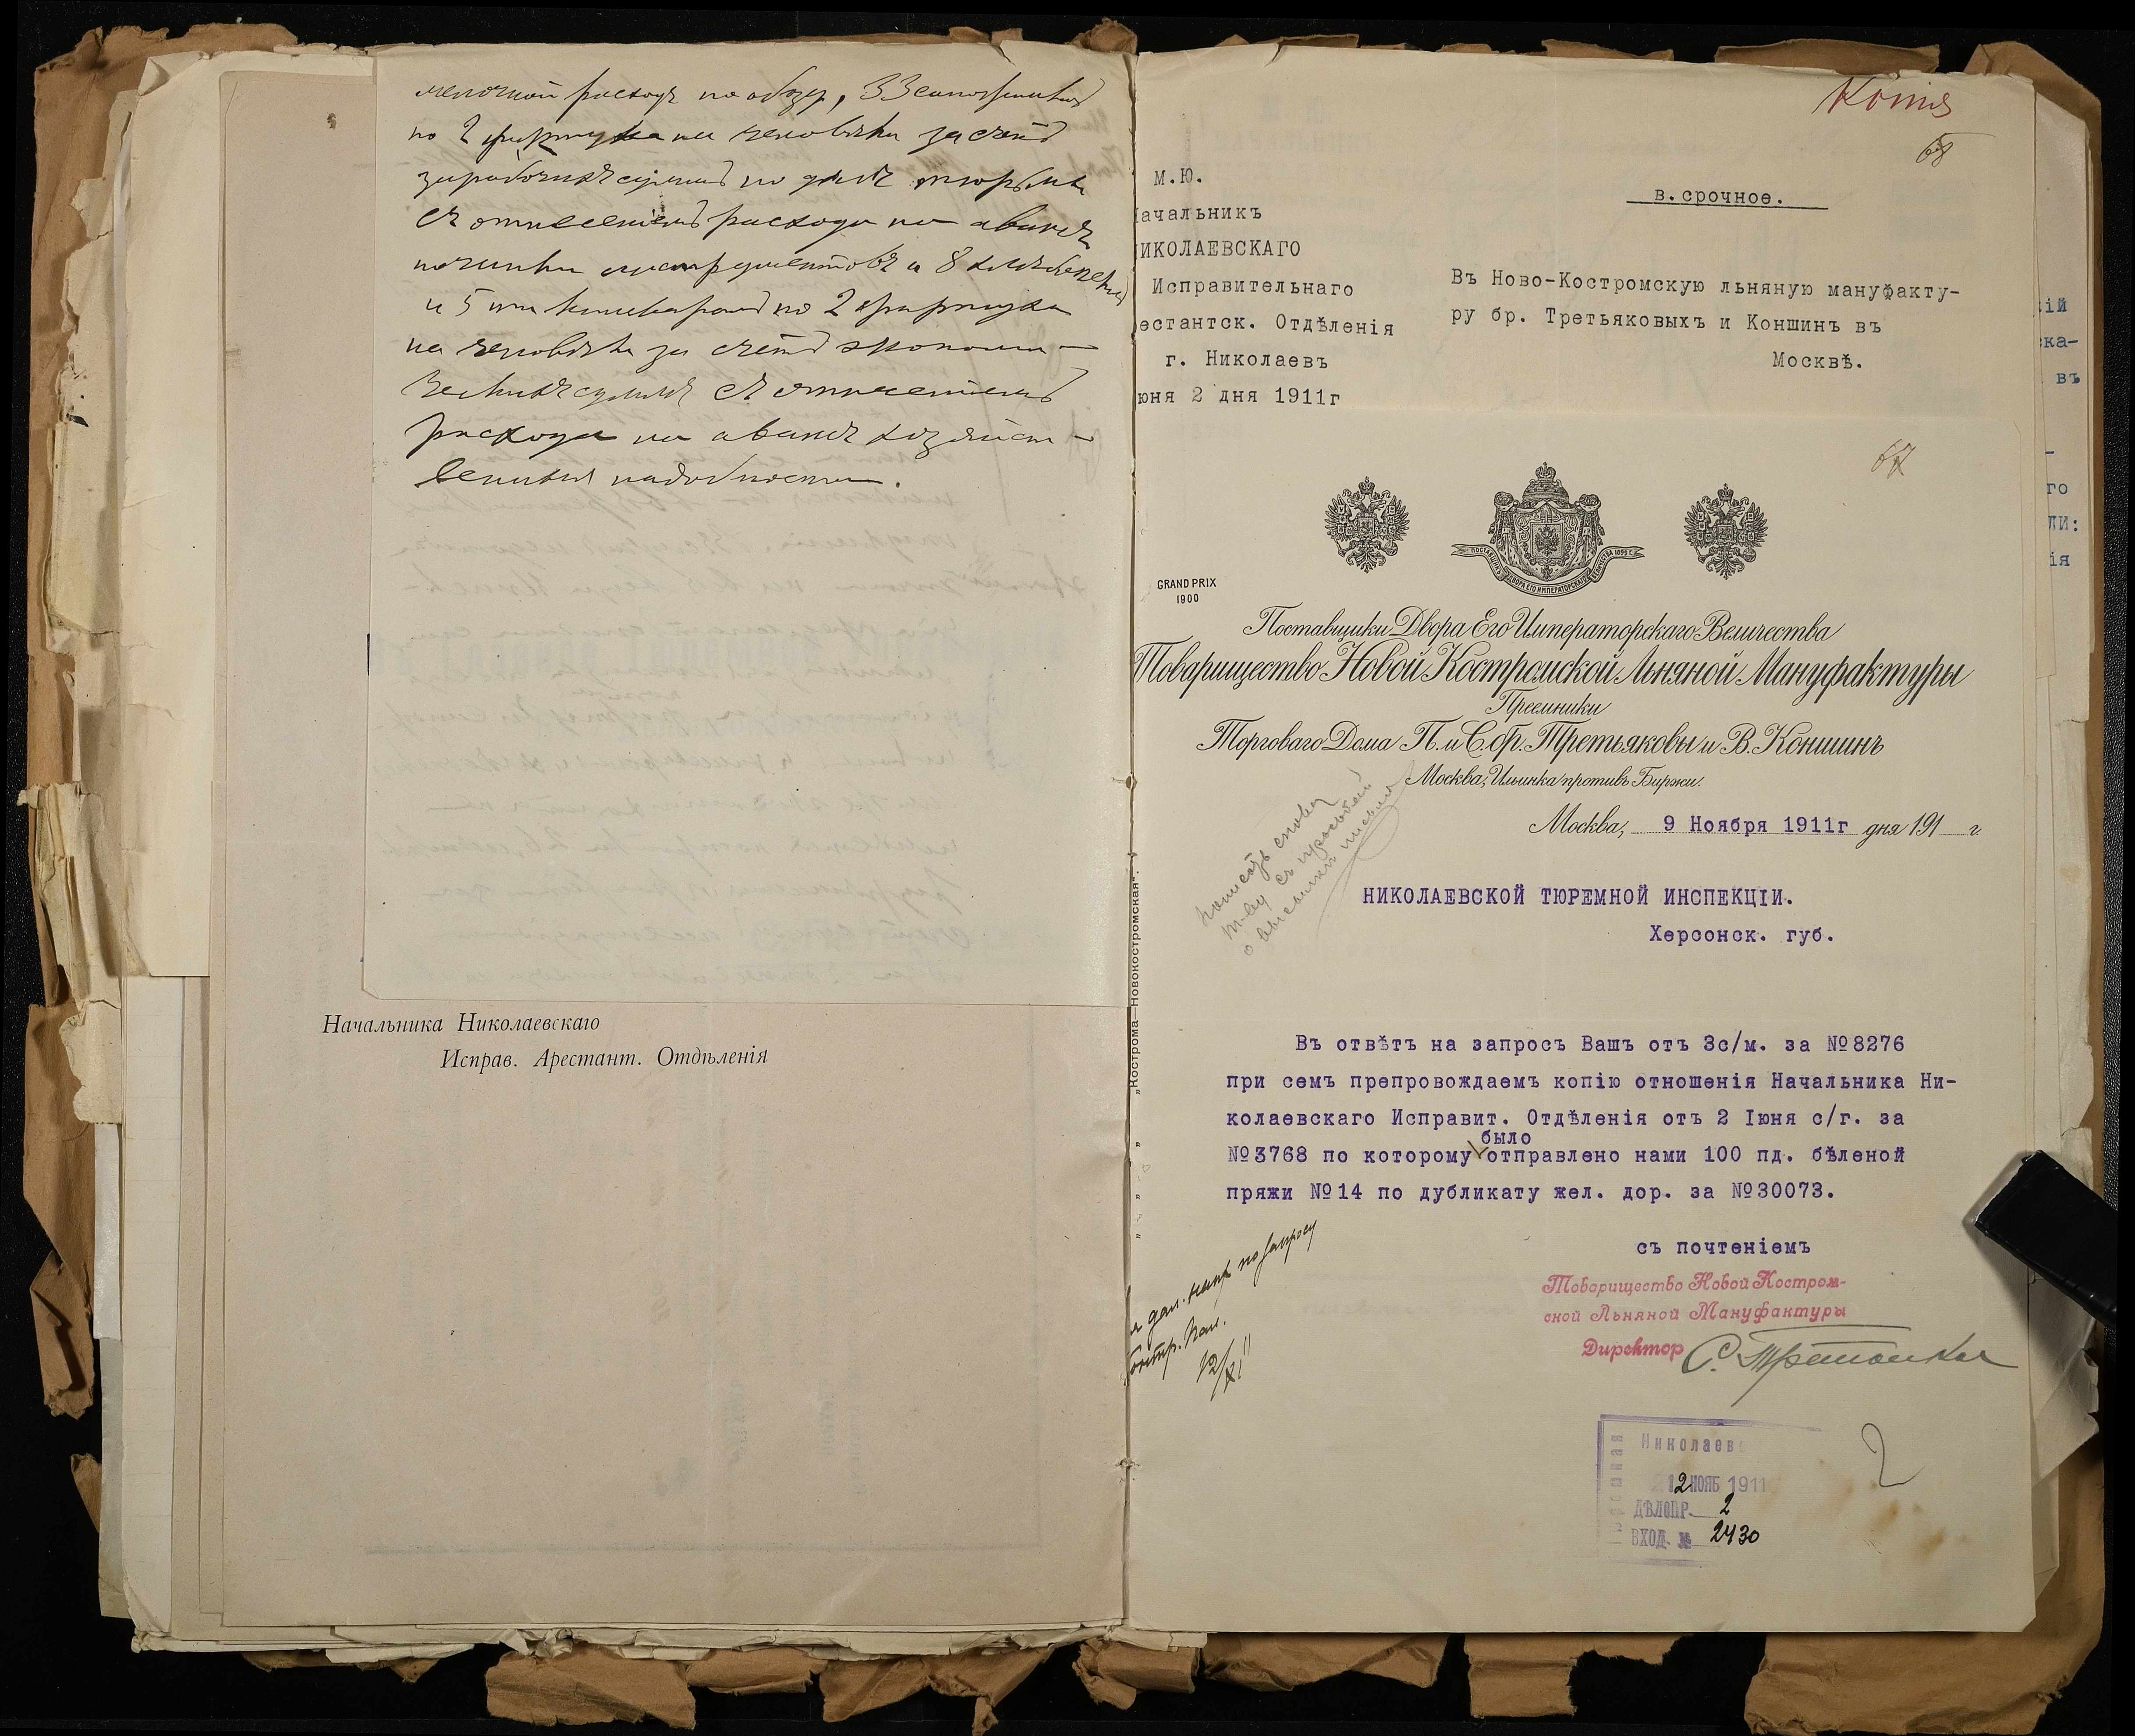 мелочной расходъ по обозу, 33 сапожникамъ
по 2 фартука на человѣка за счетъ
заработныхъ суммъ по
съ отнесеніемъ расхода на авансъ
починки инструментовъ и 8 хлѣбопекамъ
и 5 ти кашеварамъ по 2 фартука
на человѣка за счетъ экономи-
ческихъ суммъ съ отнесеніемъ
расхода на авансъ хозяйст-
венныя надобности.
Начальника Николаевскаго
Исправ. Арестант. Отдѣленія
Копія
68
М.Ю.
ачальникъ
ИКОЛАЕВСКАГО
Исправительнаго
естантск. Отдѣленія
г. Николаевъ
юня 2 дня 1911г
в.срочное.
Въ Ново-Костромскую льняную мануфакту-
ру бр. Третьяковыхъ и Коншинъ въ
Москвѣ.
67
GRAND PRIX
1900
ПОСТАВЩИКЪ ДВОРА ЕГО ИМПЕРАТОРСКАГО ВЕЛИЧЕСТВА 1899 г.
Поставщики Двора Его Императорскаго Величества
Товарищество Новой Костромской Льняной Мануфактуры
Преемники
Торговаго Дома П. и С. бр. Третьяковы и В. Коншинъ
Москва, Ильинка противъ Биржи.
Москва, 9 Ноября 1911г дня 191 г.
написать снова
т-ву съ просьбой
о высылкѣ
НИКОЛАЕВСКОЙ ТЮРЕМНОЙ ИНСПЕКЦІИ.
Херсонск. губ.
„Кострома—Новокостромская“.
Въ отвѣтъ на запросъ Вашъ отъ 3с/м. за №8276
при семъ препровождаемъ копію отношенія Начальника Ни-
колаевскаго Исправит. Отдѣленія отъ 2 Іюня с/г. за
было
№3768 по которому отправлено нами 100 пд. бѣленой
пряжи №14 по дубликату жел. дор. за №30073.
съ почтеніемъ
Товарищество Новой Костром-
ской Льняной Мануфактуры
Директоръ С. Третьяковъ
по запросу
12/XI
Николаев
12 НОЯБ 1911
ДѢЛОПР. 2
ВХОД. № 2430
2
ій
ка-
въ
-
го
ЛИ:
ія